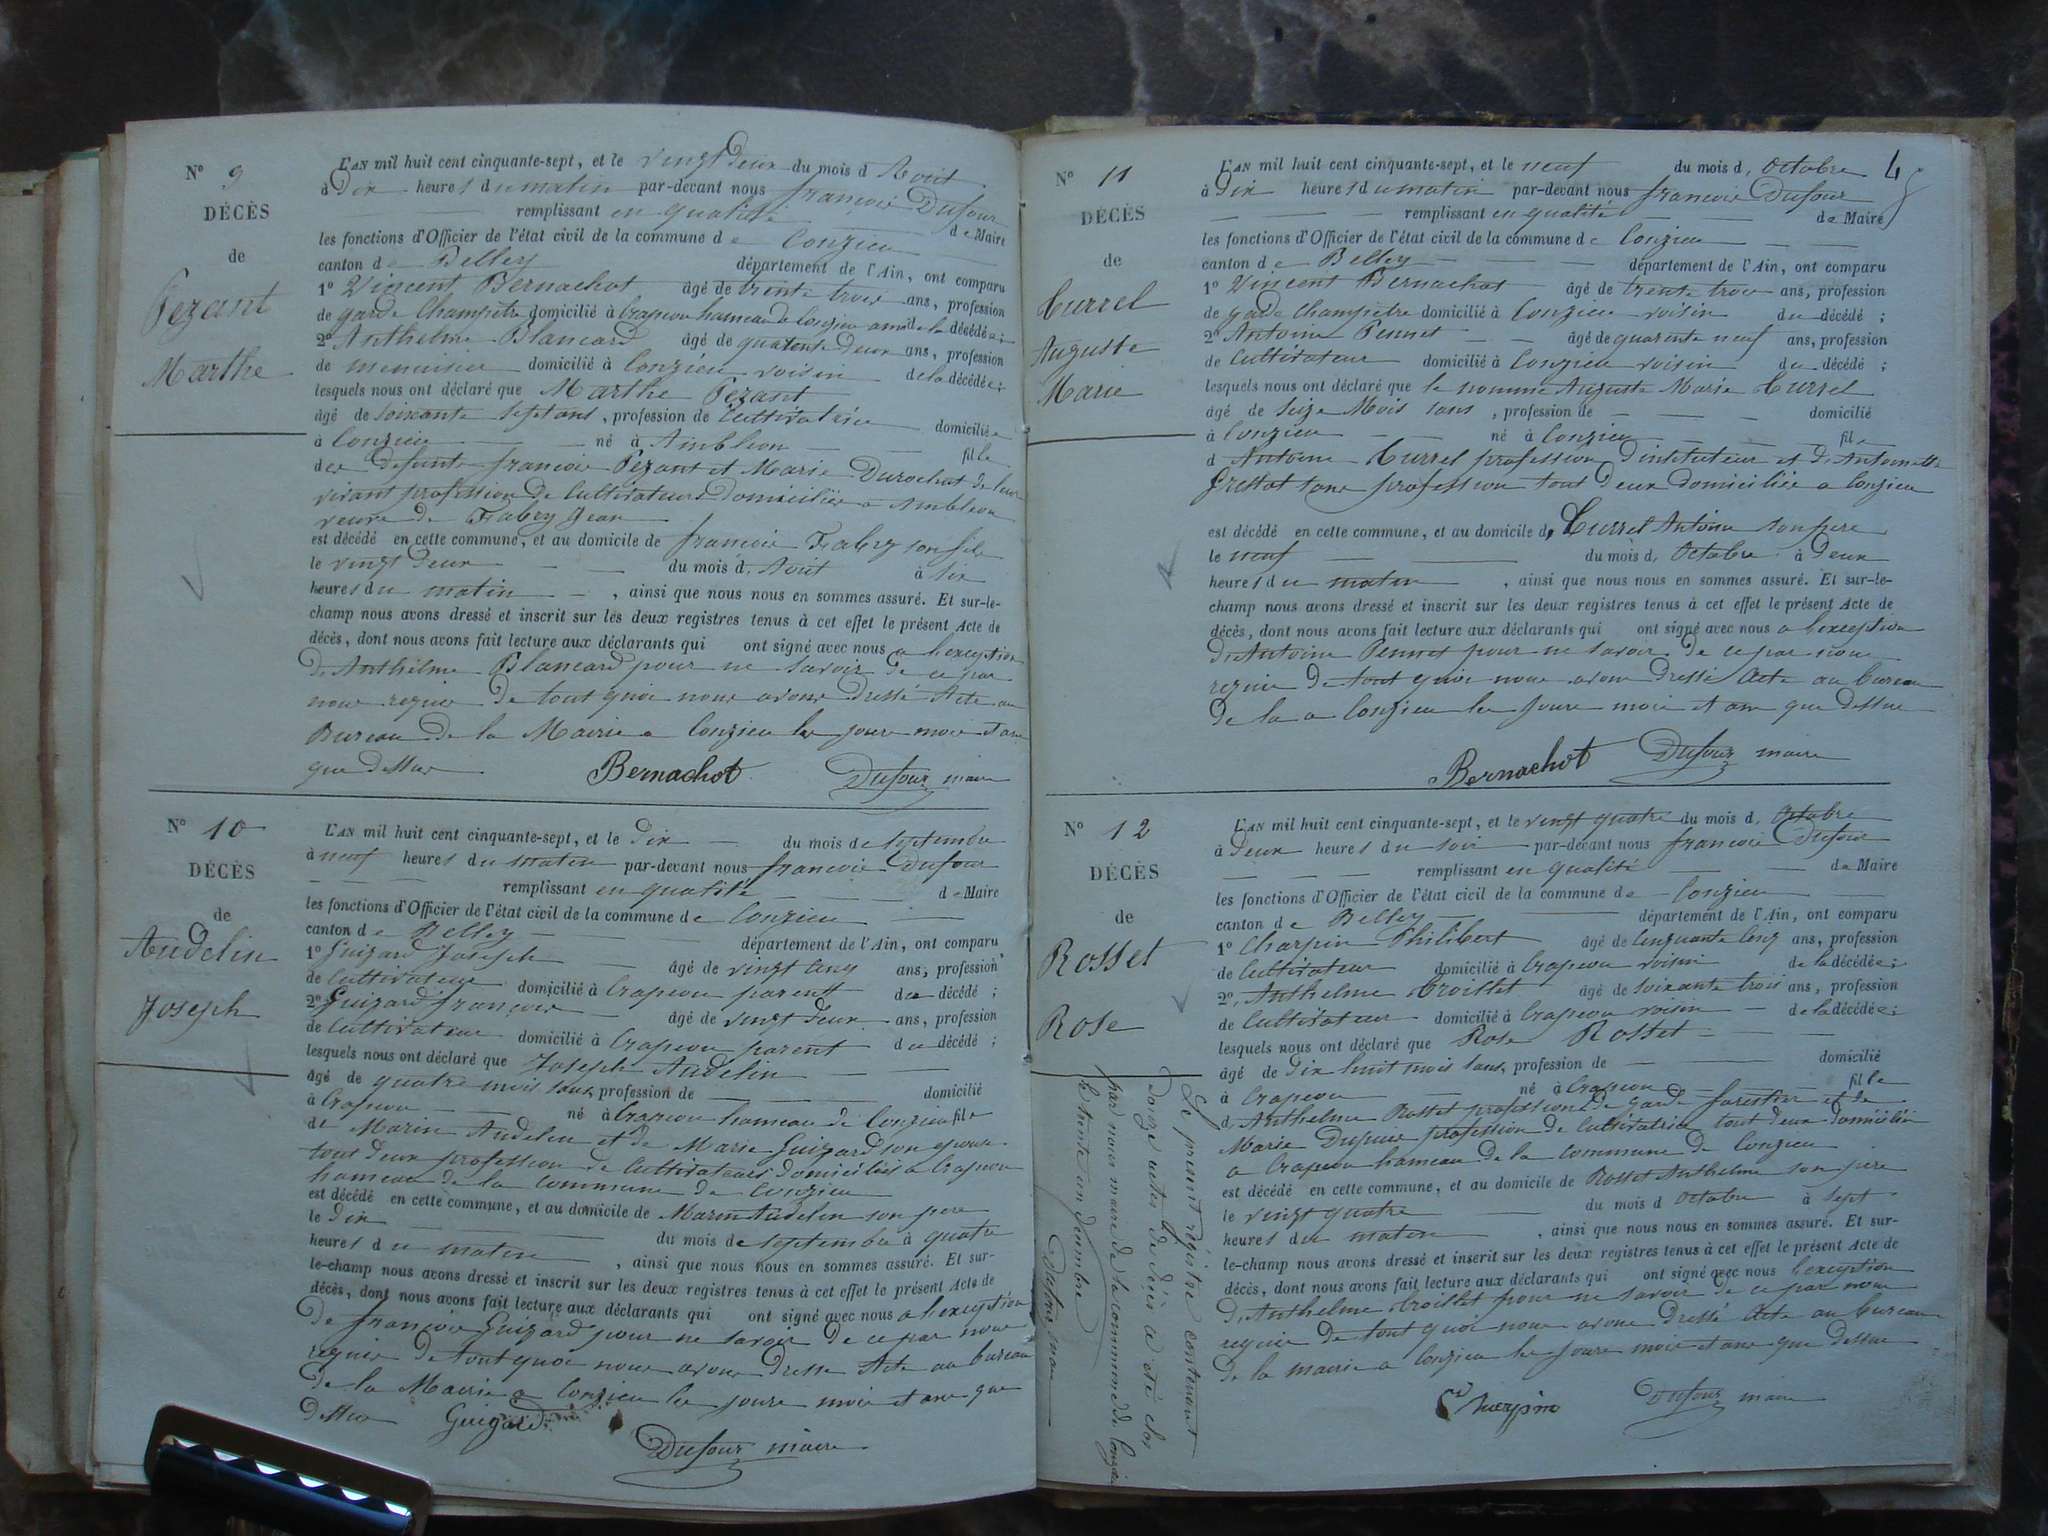 N° 9
DÉCÈS
de
Pezant
Marthe
L'AN mil huit cent cinquante-sept, et le vingt deux du mois d Aout
à Dix heures du matin par-devant nous francois Dufour
remplissant en qualité de Maire
les fonctions d'Officier de l'état civil de la commune de Conzieu
canton de Belley département de l'Ain, ont comparu
1° Vincent Bernachot âgé de trente trois ans, profession
de garde Champetre domicilié à Crapeou hameau de Conzieu ami de la décédée;
2° Anthelme Blancard âgé de quarente deux ans, profession
de menuisier domicilié à Conzieu voisin de la décédée;
lesquels nous ont déclaré que Marthe Pezant
âgé de soixante sept ans, profession de Cultivatrice domiciliée
à Conzieu né à Ambleon fille
des defunts francois Pezant et Marie Durochat de leur
vivant profession de Cultivateurs Domiciliés a Ambleon
veuve de Fabry Jean
est décédé en cette commune, et au domicile de francois Fabry son fils
le vingt deux du mois d. Aout à six
heures du matin, ainsi que nous nous en sommes assuré. Et sur-le-
champ nous avons dressé et inscrit sur les deux registres tenus à cet effet le présent Acte de
décès, dont nous avons fait lecture aux déclarants qui ont signé avec nous a lexception
D. Anthelme Blancard pour ne savoir de ce par
nous requis De tout quoi nous avons Dressé Acte au
Bureau De la Mairie a Conzieu les jours mois et an
que Dessus Bernachot Dufour maire
N° 10
DÉCÈS
de
Audelin
Joseph
L'AN mil huit cent cinquante-sept, et le Dix du mois de septembre
à neuf heures du matin par-devant nous francois Dufour
remplissant en qualité de Maire
les fonctions d'Officier de l'état civil de la commune de Conzieu
canton de Belley département de l'Ain, ont comparu
1° Guizard Joseph âgé de vingt cinq ans, profession
de Cultivateur domicilié à Crapeou parent du décédé;
2° Guizard françois âgé de vingt deux ans, profession
de Cultivateur domicilié à Crapeou parent du décédé;
lesquels nous ont déclaré que Joseph Audelin
âgé de quatre mois sans profession de domicilié
à Crapeou né à Crapeou hameau de Conzieu fils
de Marin Audelin et de Marie Guizard son epouse
tout Deux profession de Cultivateurs domiciliés a Crapeou
hameau de la Commune de Conzieu
est décédé en cette commune, et au domicile de Marin Audelin son pere
le Dix du mois de septembre à quatre
heures du matin, ainsi que nous nous en sommes assuré. Et sur-
le-champ nous avons dressé et inscrit sur les deux registres tenus à cet effet le présent Acte de
décès, dont nous avons fait lecture aux déclarants qui ont signé avec nous a lexception
De francois Guizard pour ne savoir De ce par nous
requis De tout quoi nous avons Dresse Acte au bureau
De la Mairie a Conzieu les jours mois et an que
Dessus Guizard
Dufour maire
N° 11
DÉCÈS
de
Currel
Auguste
Marie
L'AN mil huit cent cinquante-sept, et le neuf du mois d. Octobre
à Dix heures du matin par-devant nous francois Dufour
remplissant en qualité de Maire
les fonctions d'Officier de l'état civil de la commune de Conzieu
canton de Belley département de l'Ain, ont comparu
1° Vincent Bernachot âgé de trente trois ans, profession
de garde Champetre domicilié à Conzieu voisin du décédé;
2° Antoine Pennet âgé de quarente neuf ans, profession
de Cultivateur domicilié à Conzieu voisin du décédé;
lesquels nous ont déclaré que le nommé Auguste Marie Currel
âgé de seize Mois sans, profession de domicilié
à Conzieu né à Conzieu fils
d Antoine Currel profession D'instituteur et D. Antoinette
sans profession tout Deux domiciliés a Conzieu
est décédé en cette commune, et au domicile d. Currel Antoine son pere
le neuf du mois d. Octobre à Deux
heures du matin, ainsi que nous nous en sommes assuré. Et sur-le-
champ nous avons dressé et inscrit sur les deux registres tenus à cet effet le présent Acte de
décès, dont nous avons fait lecture aux déclarants qui ont signé avec nous a lexception
D. Antoine Pennet pour ne savoir De ce par nous
requis De tout quoi nous avons Dressé Acte au bureau
De la a Conzieu les jours mois et an que Dessus
Bernachot Dufour maire
N° 12
DÉCÈS
de
Rosset
Rose
L'AN mil huit cent cinquante-sept, et le vingt quatre du mois d. Octobre
à Deux heures du soir par-devant nous francois Dufour
remplissant en qualité de Maire
les fonctions d'Officier de l'état civil de la commune de Conzieu
canton de Belley département de l'Ain, ont comparu
1° Charpin Philibert âgé de Cinquante Cinq ans, profession
de Cultivateur domicilié à Crapeou voisin de la décédée;
2° Anthelme Croillet âgé de soixante trois ans, profession
de Cultivateur domicilié à Crapeou voisin de la décédée;
lesquels nous ont déclaré que Rose Rosset
âgé de Dix huit mois sans profession de domicilié
à Crapeou né à Crapeou fille
d. Anthelme Rosset profession De garde forestier et de
Marie Dupuis profession De Cultivatrice tout deux domiciliés
a Crapeou hameau De la commune De Conzieu
est décédé en cette commune, et au domicile de Rosset Anthelme son père
le vingt quatre du mois d Octobre à sept
heures du matin, ainsi que nous nous en sommes assuré. Et sur-
le-champ nous avons dressé et inscrit sur les deux registres tenus à cet effet le présent Acte de
décès, dont nous avons fait lecture aux déclarants qui ont signé avec nous lexception
D. Anthelme Croillet pour ne savoir De ce par nous
requis De tout quoi nous avons Dressé Acte au bureau
De la mairie a Conzieu les jours mois et ans que Dessus
Charpin Dufour maire
Le présent régistre contenant
Douze actes de décès a été clos
par nous maire de la commune de Conzieu
le trente un décembre
Dufour maire